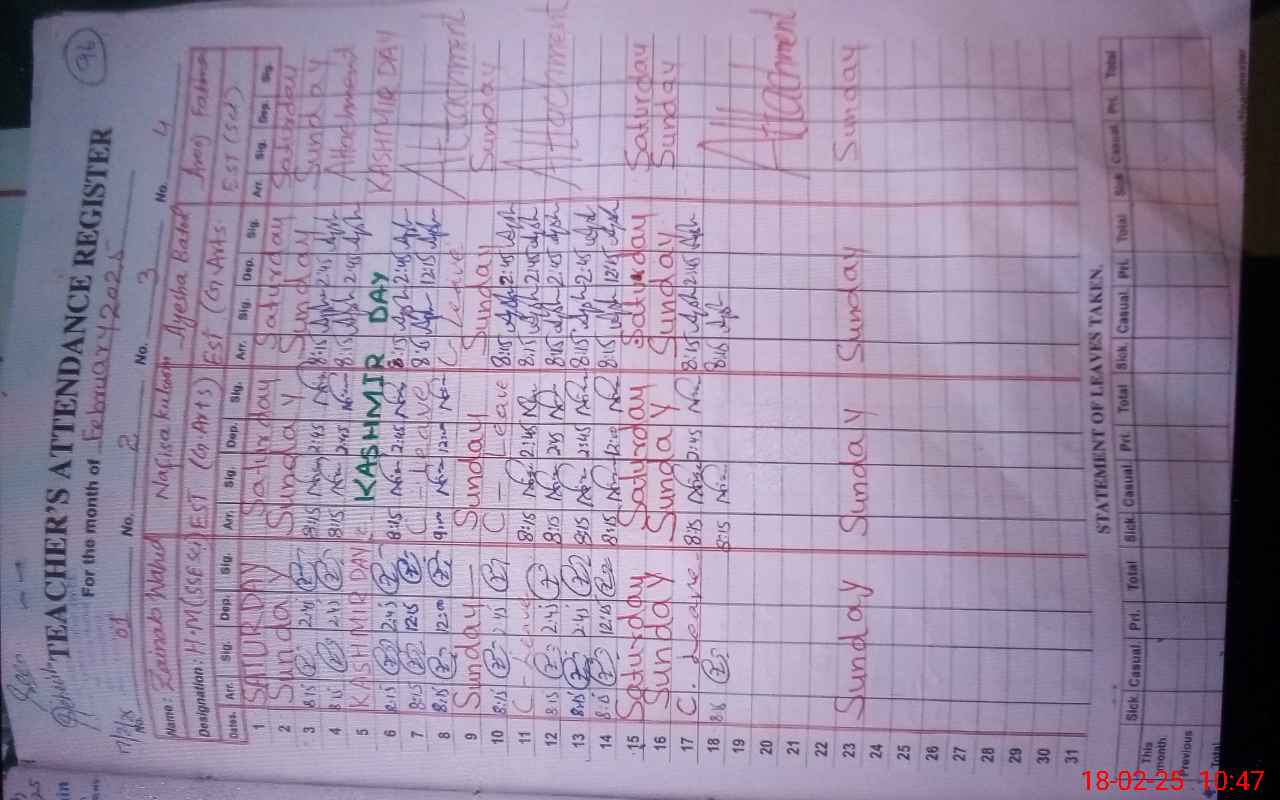 96
Seen
17/2/25
TEACHER'S ATTENDANCE REGISTER
For the month of February 2025
No. 01 No. 2 No. 3 No. 4
Name: Zainab Wahid Nafisa Kulsoom Ayesha Batool Fatima
Designation: H.M (SSESE) EST (G.Arts) EST (G.Arts) EST (Sci)
Dates. Arr. Sig. Dep. Sig. Arr. Sig. Dep. Sig. Arr. Sig. Dep. Sig. Arr. Sig. Dep. Sig.
1 SATURDAY Saturday Saturday Saturday
2 Sunday Sunday Sunday Sunday
3 8:15 2:45 8:15 2:45 8:15 2:45 Attachment
4 8:15 2:45 8:15 2:45 8:15 2:45
5 KASHMIR DAY KASHMIR DAY KASHMIR DAY
6 8:15 2:45 8:15 2:45 8:15 2:45 Attachment
7 8:15 12:15 C - Leave 8:15 12:15
8 8:15 12:00 9:00 12:00 C - Leave
9 Sunday Sunday Sunday Sunday
10 8:15 2:45 C - Leave 8:15 2:45 Attachment
11 C - Leave 8:15 2:45 8:15 2:45
12 8:15 2:45 8:15 2:45 8:15 2:45
13 8:15 2:45 8:15 2:45 8:15 2:45
14 8:15 12:15 8:15 12:00 8:15 12:15
15 Saturday Saturday Saturday Saturday
16 Sunday Sunday Sunday Sunday
17 C. Leave 8:15 2:45 8:15 2:45
18 8:15 8:15 8:15 Attachment
19
20
21
22
23 Sunday Sunday Sunday Sunday
24
25
26
27
28
29
30
31
STATEMENT OF LEAVES TAKEN.
Sick. Casual Pri. Total Sick. Casual Pri. Total Sick. Casual Pri. Total Sick Casual Pri. Total
This month
Previous
Total
18-02-25 10:47